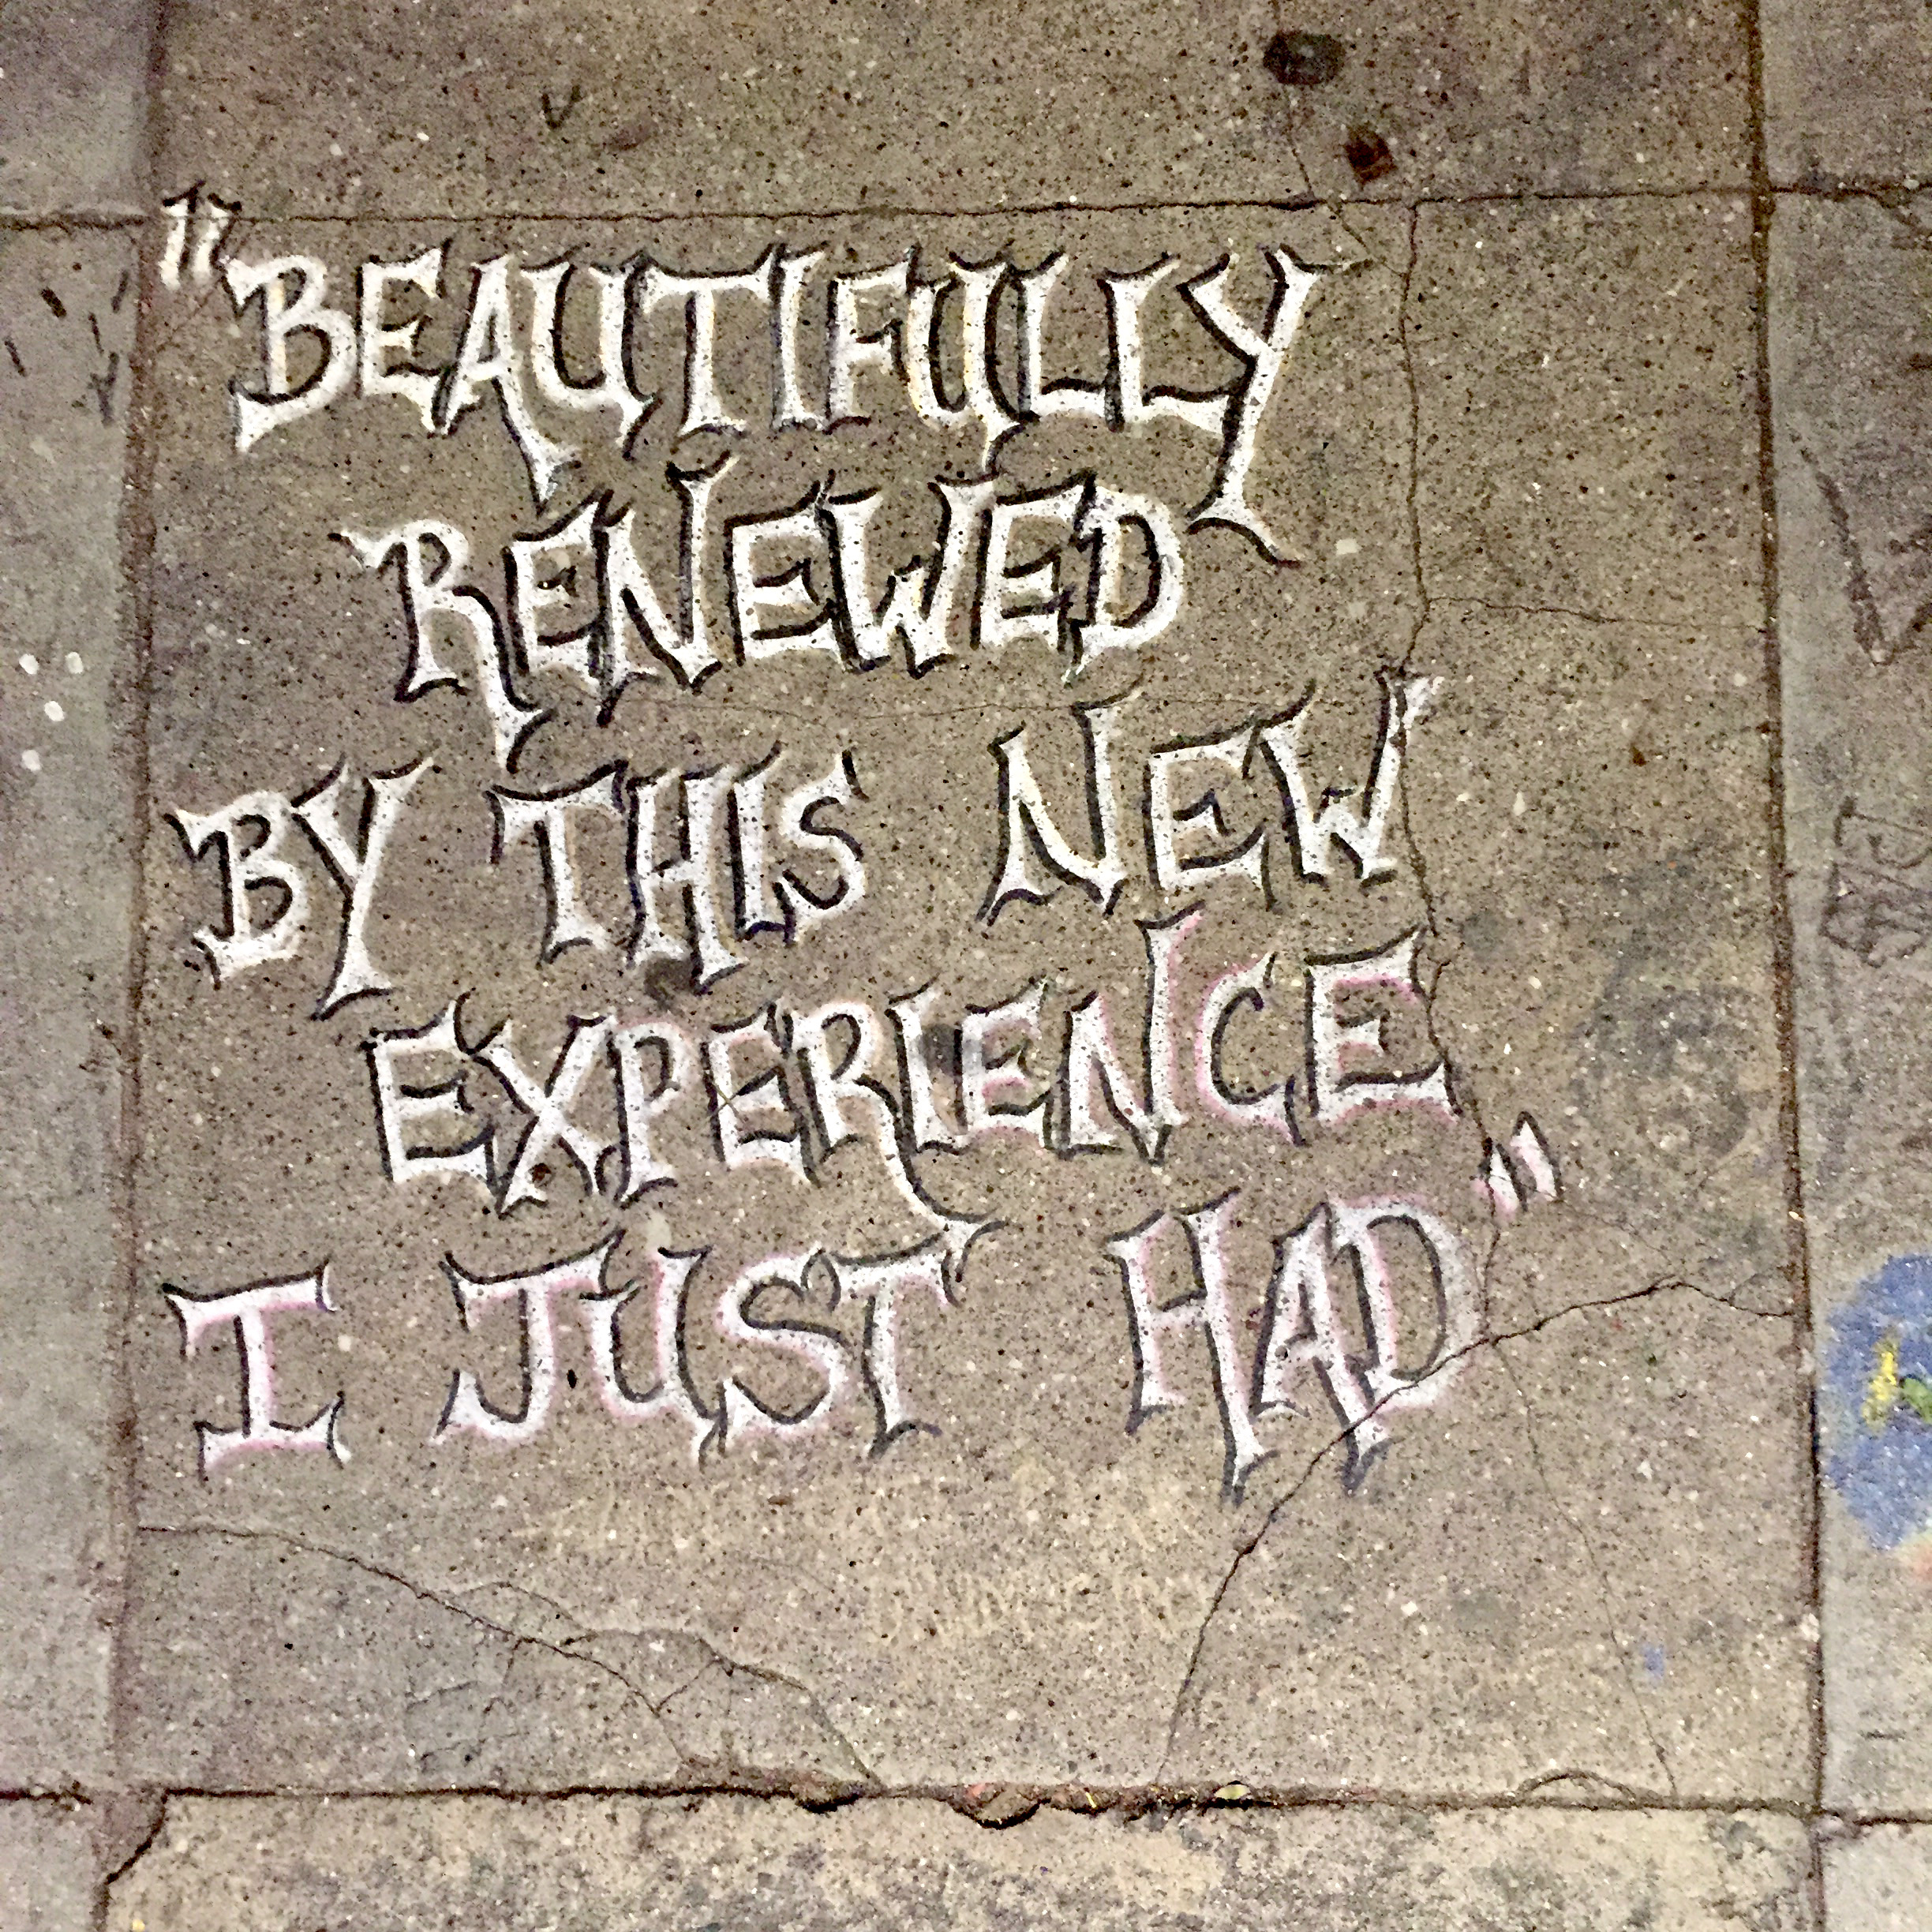 "BEAUTIFULLY
RENEWED
BY THIS NEW
EXPERIENCE
I JUST HAD"